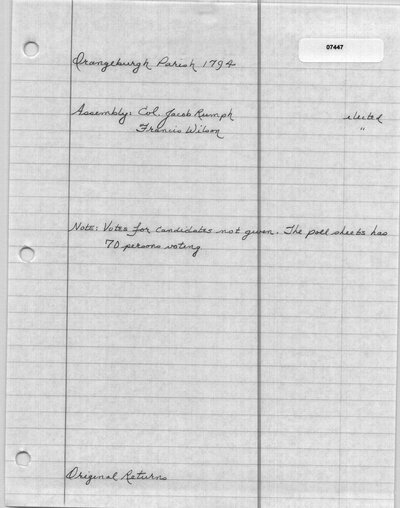 07447
Orangeburgh Parish 1794
Assembly: Col. Jacob Rumph elected
Francis Wilson "
Note: Votes for candidates not given. The poll sheets has
70 persons voting
Original Returns